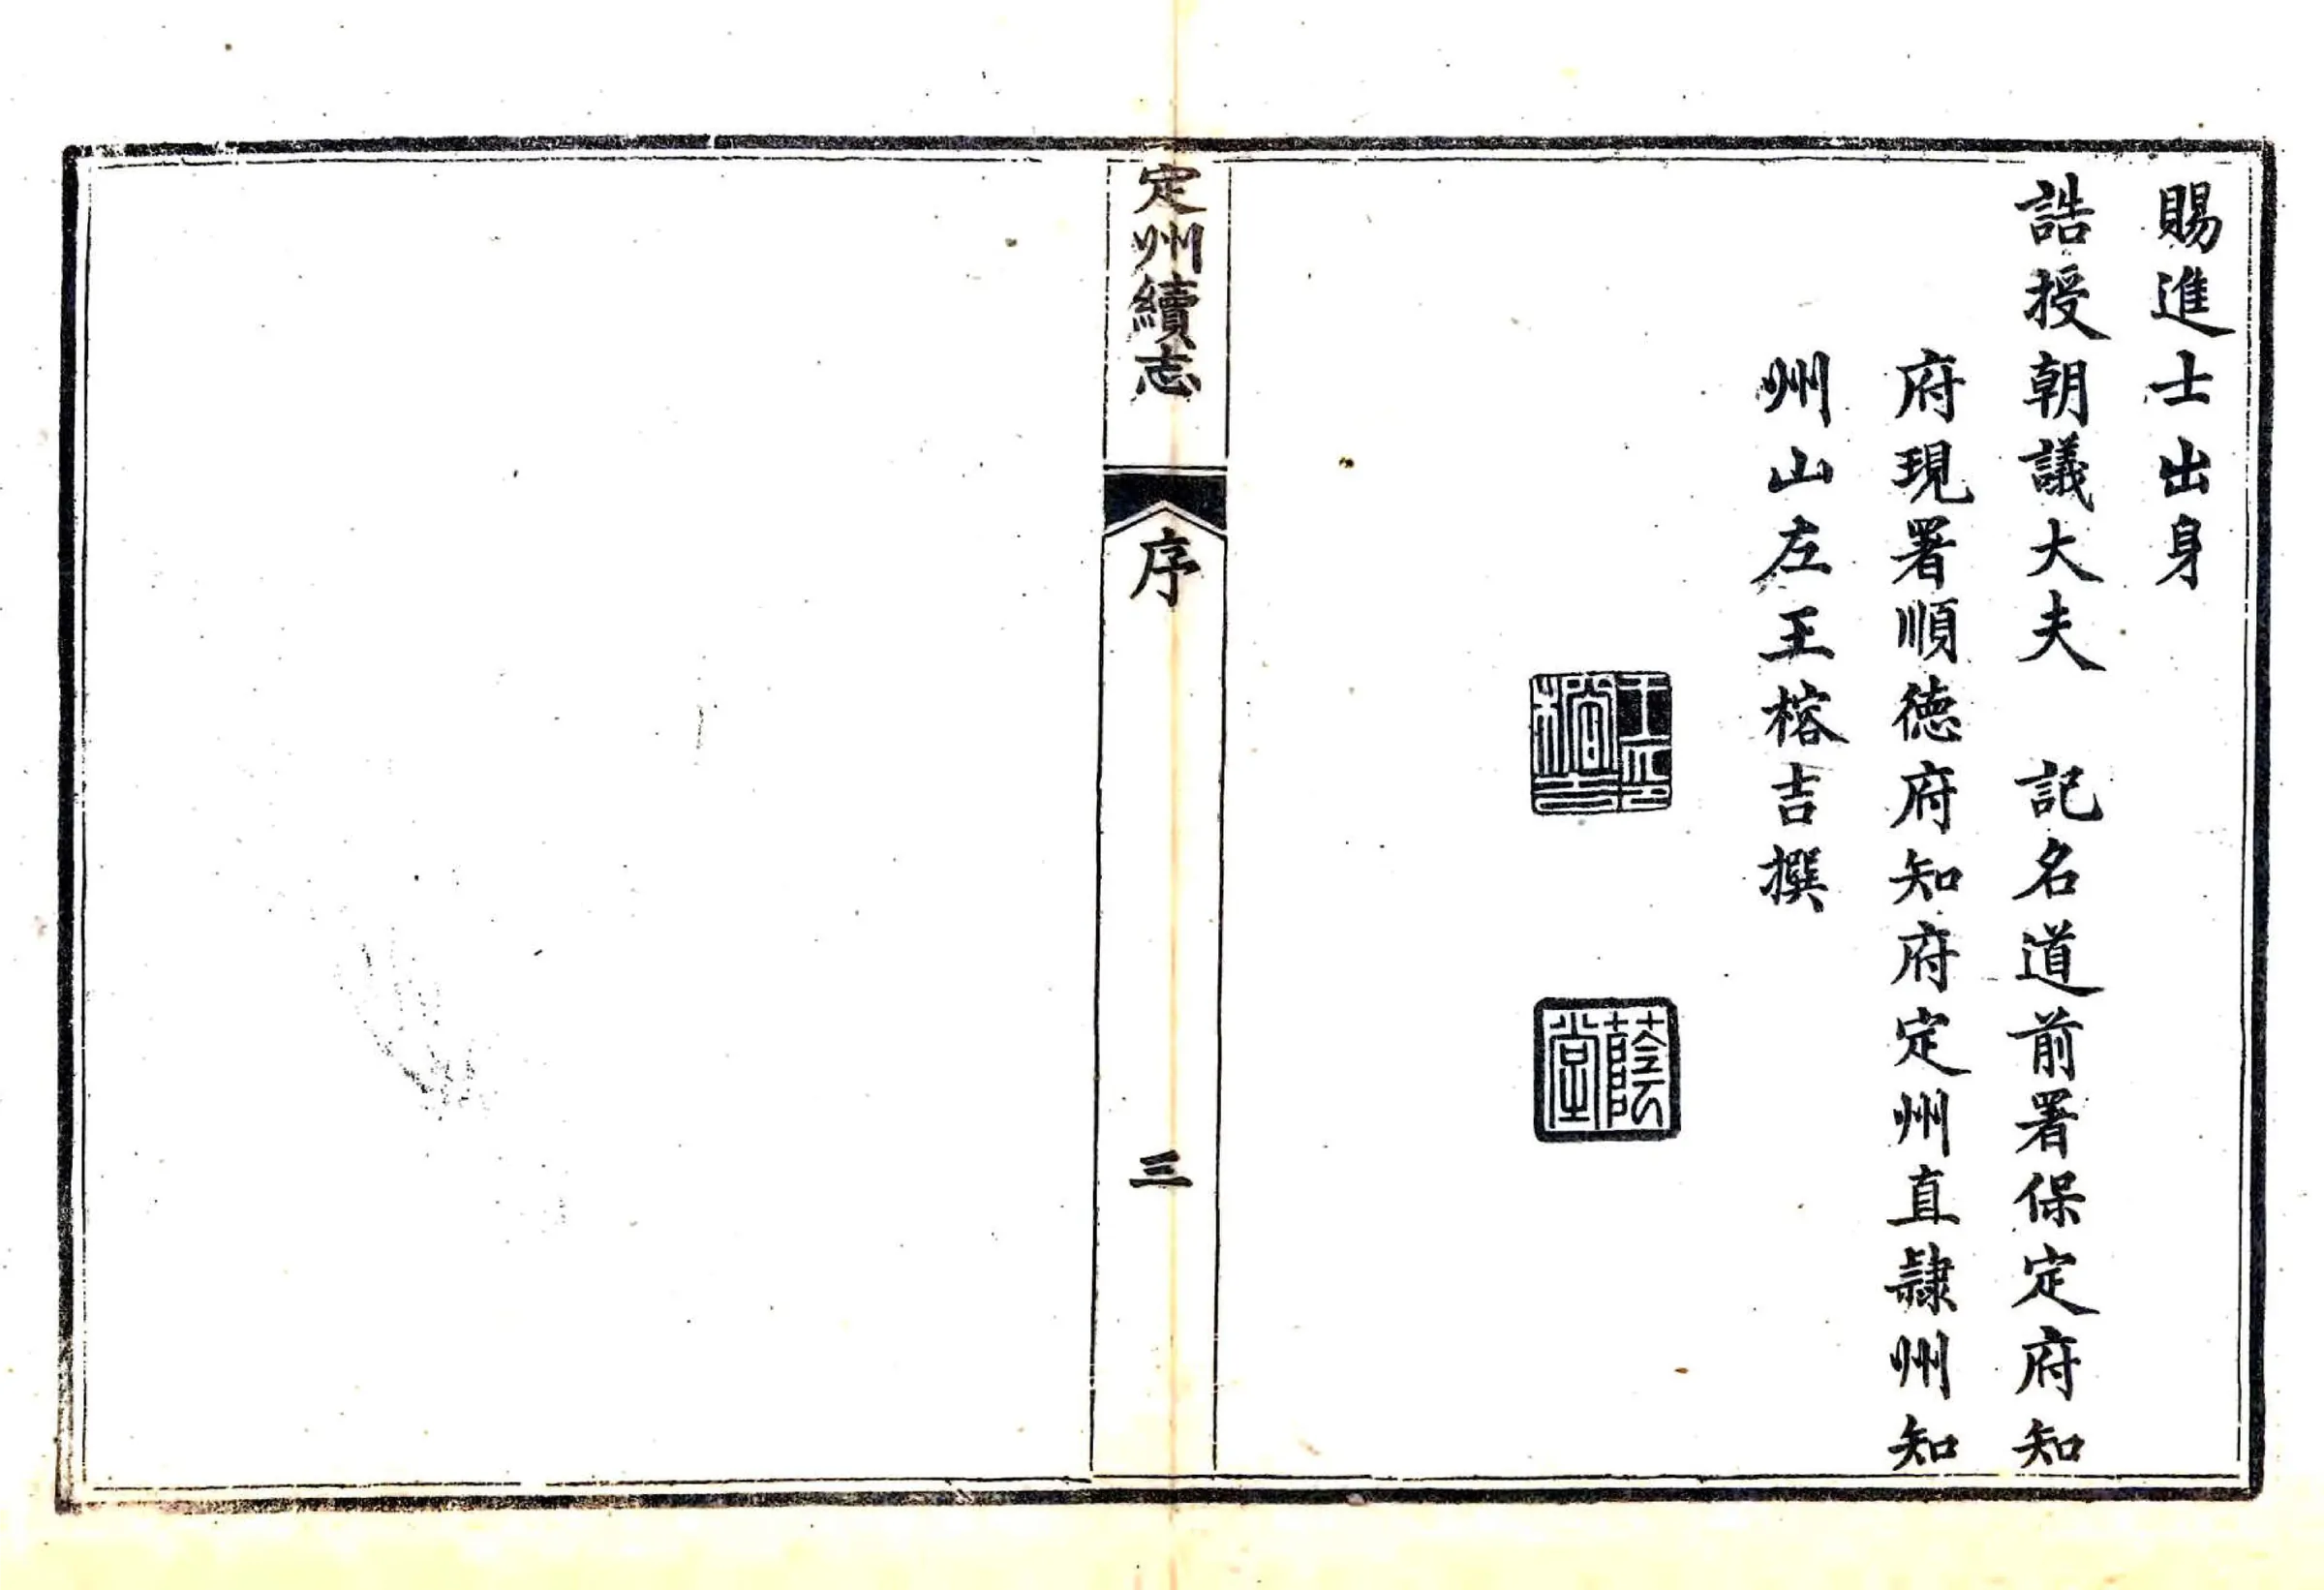 賜進士出身
誥授朝議大夫　記名道前署保定府知
府現署順徳府知府定州直隸州知
州山左王榕吉撰
王印榕吉
蔭堂
定州續志
序
三